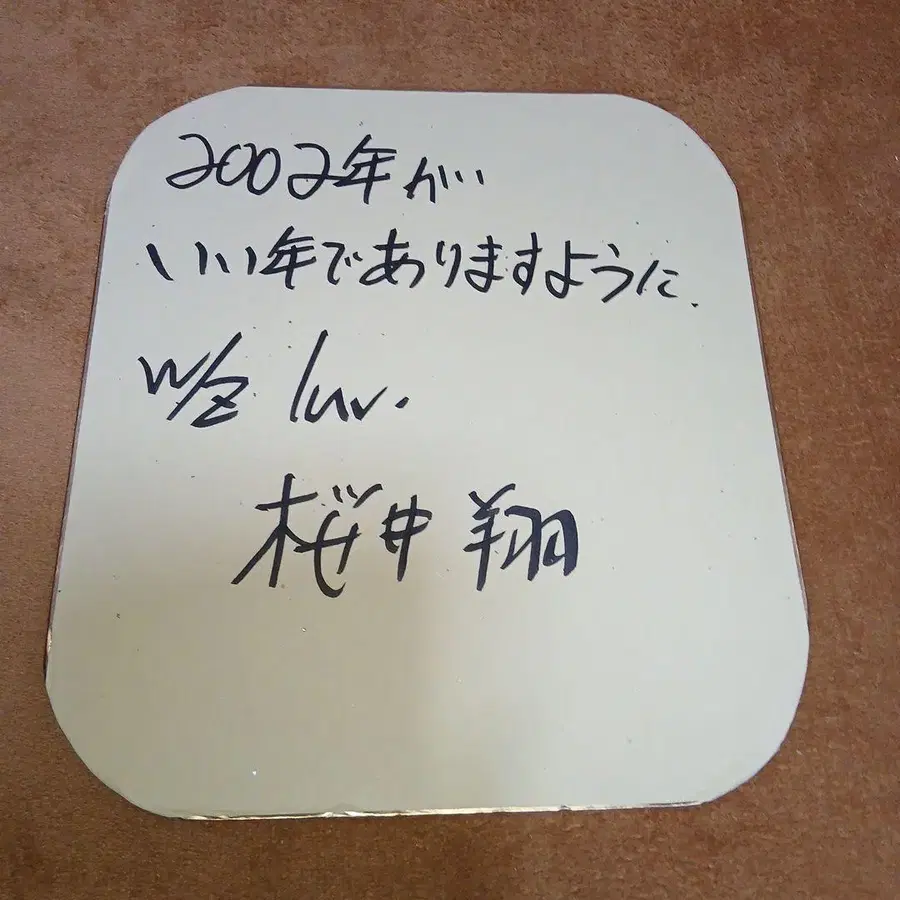 2002年が…
いい年でありますように.
w/z luv.
桜井 翔